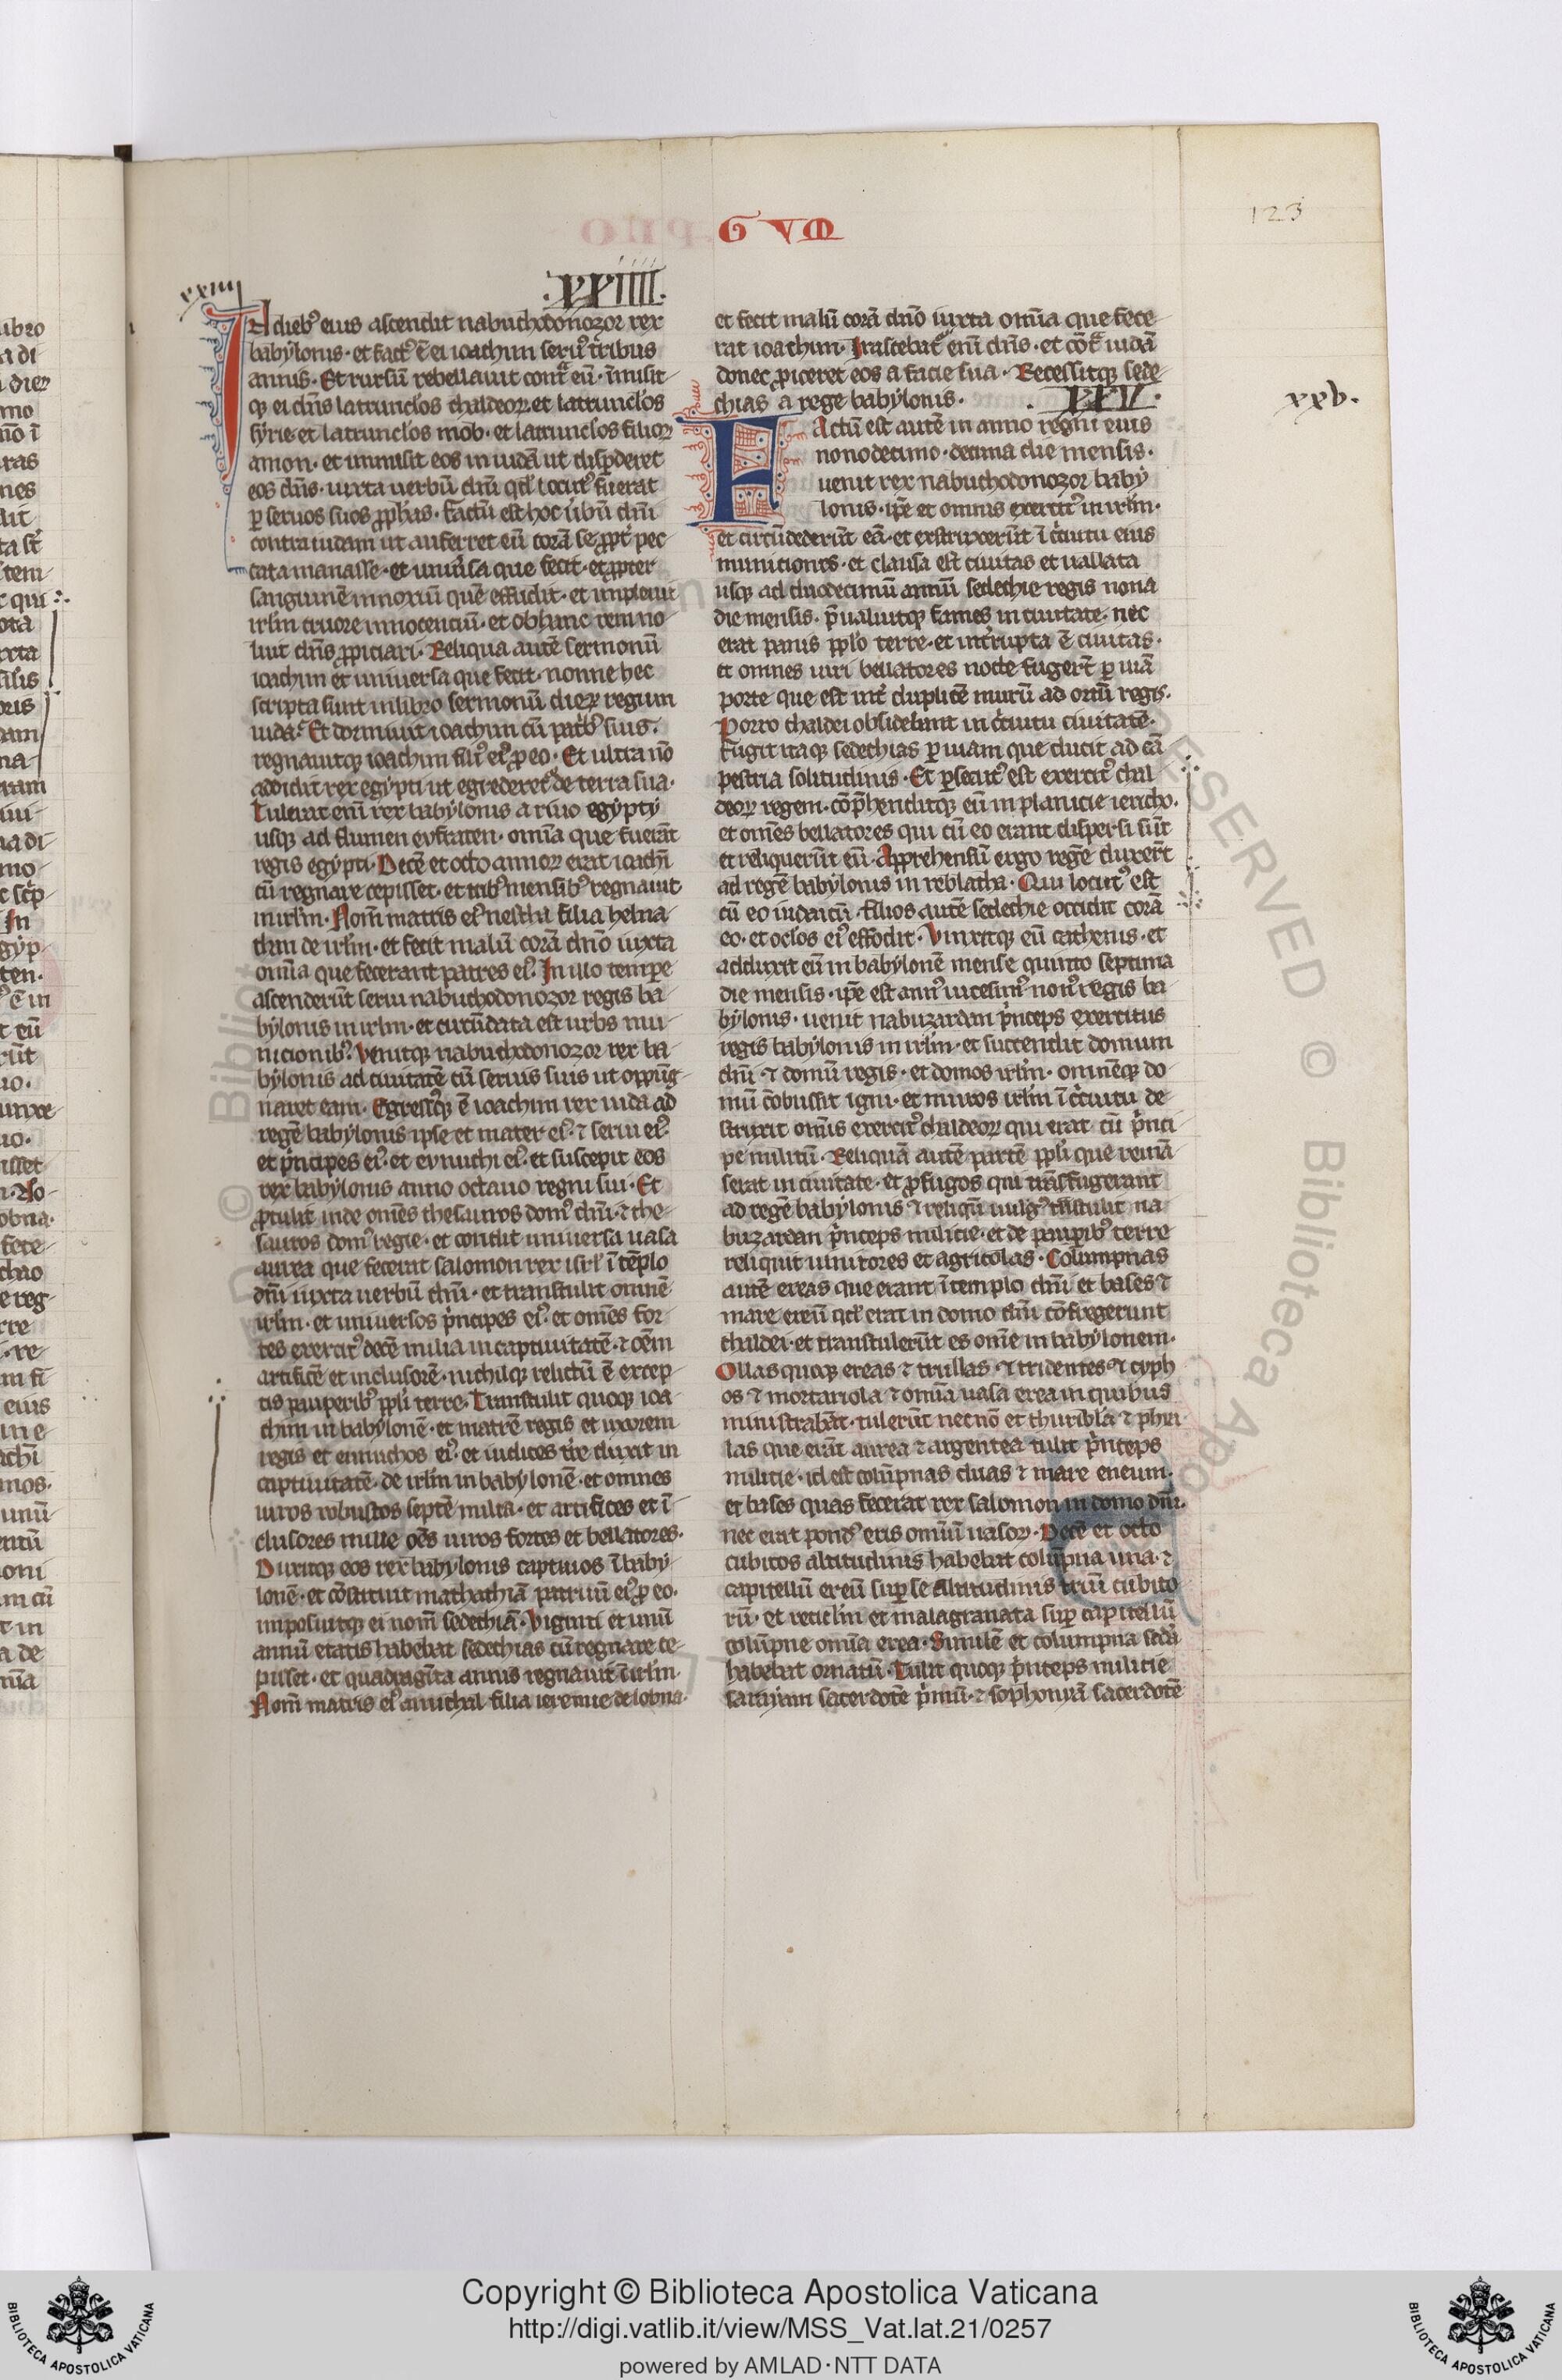 GVM
123
xxiiii
.XXIIII.
In dieb᷒ eius ascendit nabuchodonozor rex
babẏlonis · et fact᷒ ē ei ioachim seru᷒ tribus
annis · Et rursū rebellauit contͣ eū · īmisit
qꝫ ei dn̄s latrunclos chaldeoꝝ et latrunclos
sẏrie et latrunclos moab · et latrunclos filioꝝ
amon · et inmisit eos in iudā ut disꝑderet
eos dn̄s · iuxta uerbū dn̄i qd̛ locut᷒ fuerat
ꝑ seruos suos ꝓphās · factū est hoc ūbū dn̄i
contra iudam ut auferret eū corā se ꝓpt̛ pec
cata manasse · et uniūsa que fecit · et ꝓpter
sanguinē innoxiū quē effudit · et impleuit
irl̄m cruore innocentiū · et ob hanc rem no
luit dn̄s ꝓpiciari · Reliqua autē sermonū
ioachim et uniuersa que fecit · nonne hec
scripta sunt in libro sermonū dieꝝ regum
iuda · Et dormiuit ioachim cū patͥb᷒ suis ·
regnauitqꝫ ioachim fili᷒ ei᷒ ꝓ eo · Et ultra nō
addidit rex egẏpti ut egrederet᷒ de terra sua ·
Tulerat enī rex babẏlonis a riuo egẏpty
usqꝫ ad flumen eufraten · omīa que fuerāt
regis egẏpti · Decē et octo annoꝝ erat ioachī
cū regnare cepisset · et tribꝫ mensib᷒ regnauit
in irl̄m · Nom̄ matris ei᷒ nestha filia helna
than de irl̄m · et fecit malū corā dn̄o iuxta
omīa que fecerant patres ei᷒ · In illo temꝑe
ascenderūt serui nabuchodonozor regis ba
bẏlonis in irl̄m · et circūdata est urbs mu
nicionib᷒ · Venitqꝫ nabuchodonozor rex ba
bẏlonis ad ciuitatē cū seruis suis ut oppūg
naret eam · Egressusqꝫ ē ioachim rex iuda ad
regē babẏlonis ipse et mater ei᷒ · ⁊ serui ei᷒ ·
et pͥncipes ei᷒ · et eunuchi ei᷒ · et suscepit eos
rex babẏlonis anno octauo regni sui · Et
ꝓtulit inde omēs thesauros dom᷒ dn̄i · ⁊ the
sauros dom᷒ regie · et concidit uniuersa uasa
aurea que fecerat salomon rex isrl̄ ī tēplo
dn̄i iuxta uerbū dn̄i · et transtulit omnē
irl̄m · et uniuersos pͥncipes ei᷒ · et omēs for
tes exercit᷒ decē milia in captiuitatē · ⁊ oēm
artificē et inclusorē · nichilqꝫ relictū ē excep
tis pauperib᷒ ppl̄i terre · Transtulit quoqꝫ ioa
chim in babẏlonē · et matrē regis et uxorem
regis et eunuchos ei᷒ · et iudices tr̄e duxit in
captiuitatē · de irl̄m in babẏlonē · et omnes
uiros robustos septē milia · et artifices et ī
clusores mille oēs uiros fortes et bellatores ·
Duxitqꝫ eos rex babẏlonis captiuos ī babẏ
lonē · et cōstituit mathathiā patruū ei᷒ ꝓ eo ·
imposuitqꝫ ei nom̄ sedechiā · Viginti et unū
annū etatis habebat sedechias cū regnare ce
pisset · et quadraginta annis regnauit ī irl̄m ·
Nom̄ matris ei᷒ amichal filia ieremie de lobna ·
et fecit malū corā dn̄o iuxta omīa que fece
rat ioachim · Irascebat᷒ enī dn̄s · et cōtͣ iudā
donec ꝓiceret eos a facie sua · Recessitqꝫ sede
chias a rege babẏlonis ·
. XXV.
xxv.
Factū est autē in anno regni eius
nonodecimo · decima die mensis ·
uenit rex nabuchodonozor babẏ
lonis · ip̄e et omnis exercit᷒ in irl̄m ·
et circūdederūt eā · et exstruxerūt ī cͥcuitu eius
munitiones · et clausa est ciuitas et uallata
usqꝫ ad duodecimū annū sedechie regis nona
die mensis · p̄ualuitqꝫ fames in ciuitate · nec
erat panis ppl̄o terre · et int̛rupta ē ciuitas ·
et omnes uiri bellatores nocte fugerūt ꝑ uiā
porte que est int̛ duplicē murū ad ortū regis ·
Porro chaldei obsidebant in cͥcuitu ciuitatē ·
Fugit itaqꝫ sedechias ꝑ uiam que ducit ad cā
pestria solitudinis · Et ꝑsecut᷒ est exercit᷒ chal
deoꝝ regem · cōp̄henditqꝫ eū in planicie iericho ·
et omēs bellatores qui cū eo erant dispersi sūt
et reliquerūt eū · Apprehensū ergo regē duxerūt
ad regē babẏlonis in reblatha · Qui locut᷒ est
cū eo iudiciū · filios autē sedechie occidit corā
eo · et oclos ei᷒ effodit · Vinxitqꝫ eū cathenis · et
adduxit eū in babẏlonē mense quinto septima
die mensis · ip̄e est ann᷒ uicesim᷒ non᷒ regis ba
bẏlonis · uenit nabuzardan pͥnceps exercitus
regis babẏlonis in irl̄m · et succendit domum
dn̄i · ⁊ domū regis · et domos irl̄m · omnēqꝫ do
mū cōbussit igni · et muros irl̄m ī cͥcuitu de
struxit omīs exercit᷒ chaldeoꝝ qui erat cū pͥnci
pe militū · Reliquā autē partē ppl̄i que remā
serat in ciuitate · et ꝓfugos qui trāsfugerant
ad regē babẏlonis ⁊ reliqū uulg᷒ trāstulit na
buzardan pͥnceps milicie · et de pauꝑib᷒ terre
reliquit uinitores et agricolas · Columpnas
autē ereas que erant ī templo dn̄i et bases ⁊
mare ereū qd̛ erat in domo dn̄i cōfregerunt
chaldei · et transtulerūt es om̄e in babẏlonem ·
Ollas quoqꝫ ereas ⁊ trullas · ⁊ tridentes ⁊ cẏph
os ⁊ mortariola ⁊ omīa uasa erea in quibus
ministrabāt · tulerūt necnō et thuribla ⁊ phia
las que erāt aurea ⁊ argentea tulit pͥnceps
militie · id est colūpnas duas ⁊ mare eneum ·
et bases quas fecerat rex salomon in domo dn̄i ·
nec erat pond᷒ eris omīū uasoꝝ · Decē et octo
cubitos altitudinis habebat colūpna una · ⁊
capitellū ereū suꝑ se altitudinis triū cubito
rū · et reticl̄m et malagranata suꝑ capitellū
colūpne omīa erea · Similē et columpna sedā
habebat ornatū · Tulit quoqꝫ pͥnceps militie
saraẏam sacerdotē pͥmū · ⁊ sophoniā sacerdotē
Copyright © Biblioteca Apostolica Vaticana
http://digi.vatlib.it/view/MSS_Vat.lat.21/0257
powered by AMLAD · NTT DATA
BIBLIOTECA APOSTOLICA VATICANA
BIBLIOTECA APOSTOLICA VATICANA